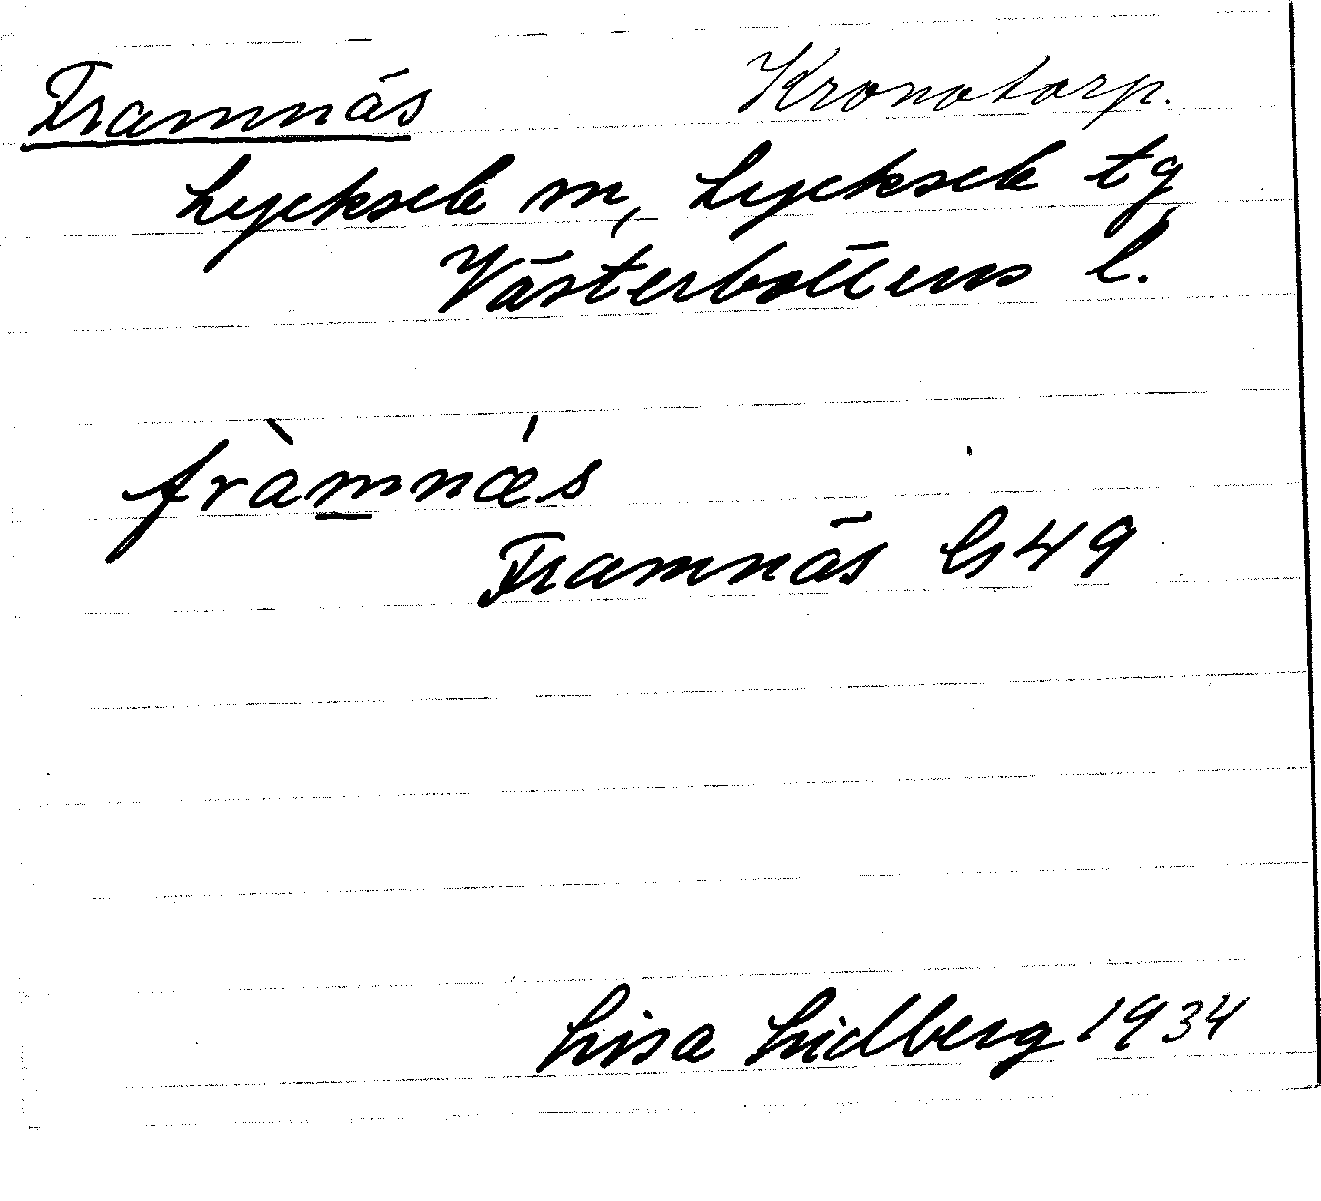 Framnäs Kronotorp.
Lycksele m, Lycksele tg
Västerbottens l.
fràmnǽs
Framnäs Gs 49
Lisa Lidberg 1934